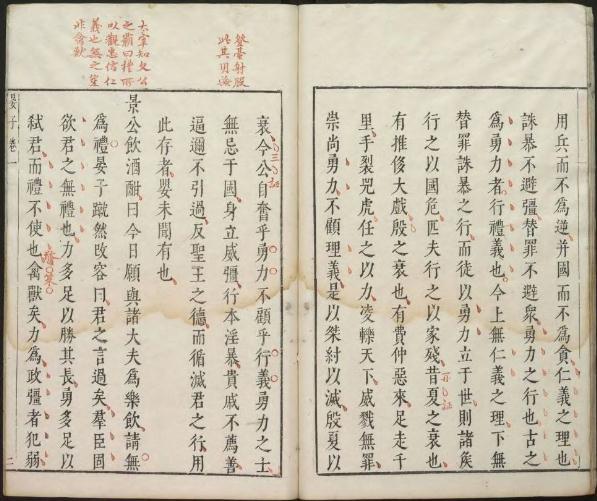 用兵而不為逆并國而不為貪仁義之理也
誅暴不避彊替罪不避衆勇力之行也古之
為勇力者行禮義也今上無仁義之理下無
替罪誅暴之行而徒以勇力立于世則諸矦
行之以國危匹夫行之以家殘昔夏之衰也
有推侈大戲殷之衰也有費仲惡來足走千
里手裂兕虎任之以力凌轢天下威戮無罪
崇尚勇力不顧理義是以桀紂以滅殷夏以
此其明驗
衰今公自奮乎勇力不顧乎行義勇力之士
無忌于國身立威彊行本淫暴貴戚不薦善
逼邇不引過反聖王之德而循滅君之行用
此存者嬰未聞有也
大宰知文公
之霸曰禮所
以觀忠信仁
義也無之豈
非禽獸
景公飲酒酣曰今日願與諸大夫為樂飲請無
為禮晏子蹴然改容曰君之言過矣羣臣固
欲君之無禮也力多足以勝其長勇多足以
弑君而禮不使也禽獸矣力為政彊者犯弱
晏子 卷一
二